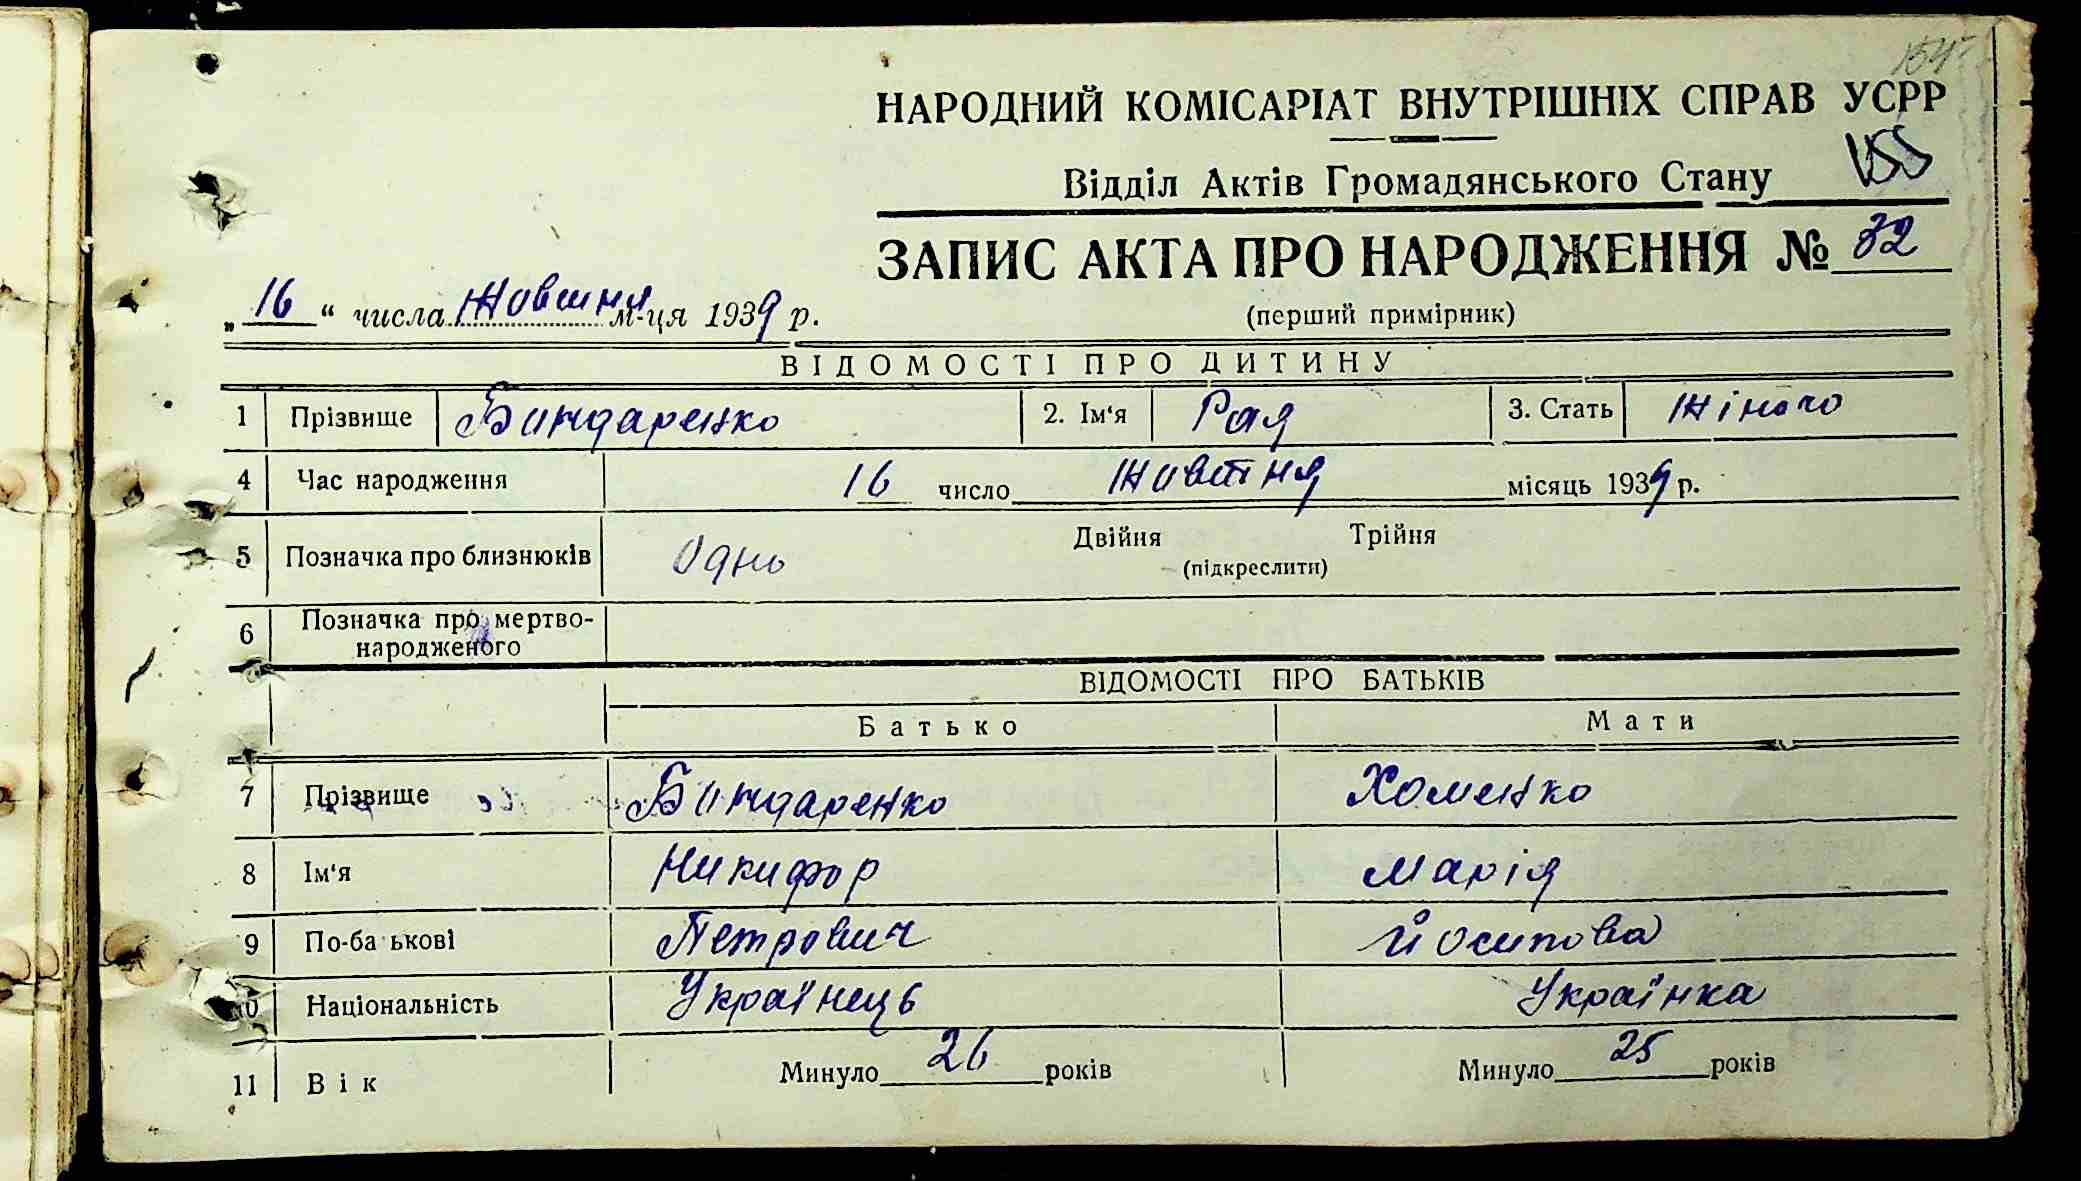 154
НАРОДНИЙ КОМІСАРІАТ ВНУТРІШНІХ СПРАВ УСРР
Відділ Актів Громадянського Стану
ЗАПИС АКТА ПРО НАРОДЖЕННЯ № 32
„16“ числа Жовтня м-ця 1939 р.
(перший примірник)
ВІДОМОСТІ ПРО ДИТИНУ
1 Прізвище Бондаренко 2. Ім‘я Рая 3. Стать Жіноча
4 Час народження 16 число Жовтня місяць 1939 р.
5 Позначка про близнюків Одно Двійня Трійня
(підкреслити)
6 Позначка про мертво-
народженого
ВІДОМОСТІ ПРО БАТЬКІВ
Батько Мати
7 Прізвище Бондаренко Хоменко
8 Ім‘я Никифор Марія
9 По-ба ькові Петрович Йосипова
10 Національність Українець Українка
11 Вік Минуло 26 років Минуло 25 років